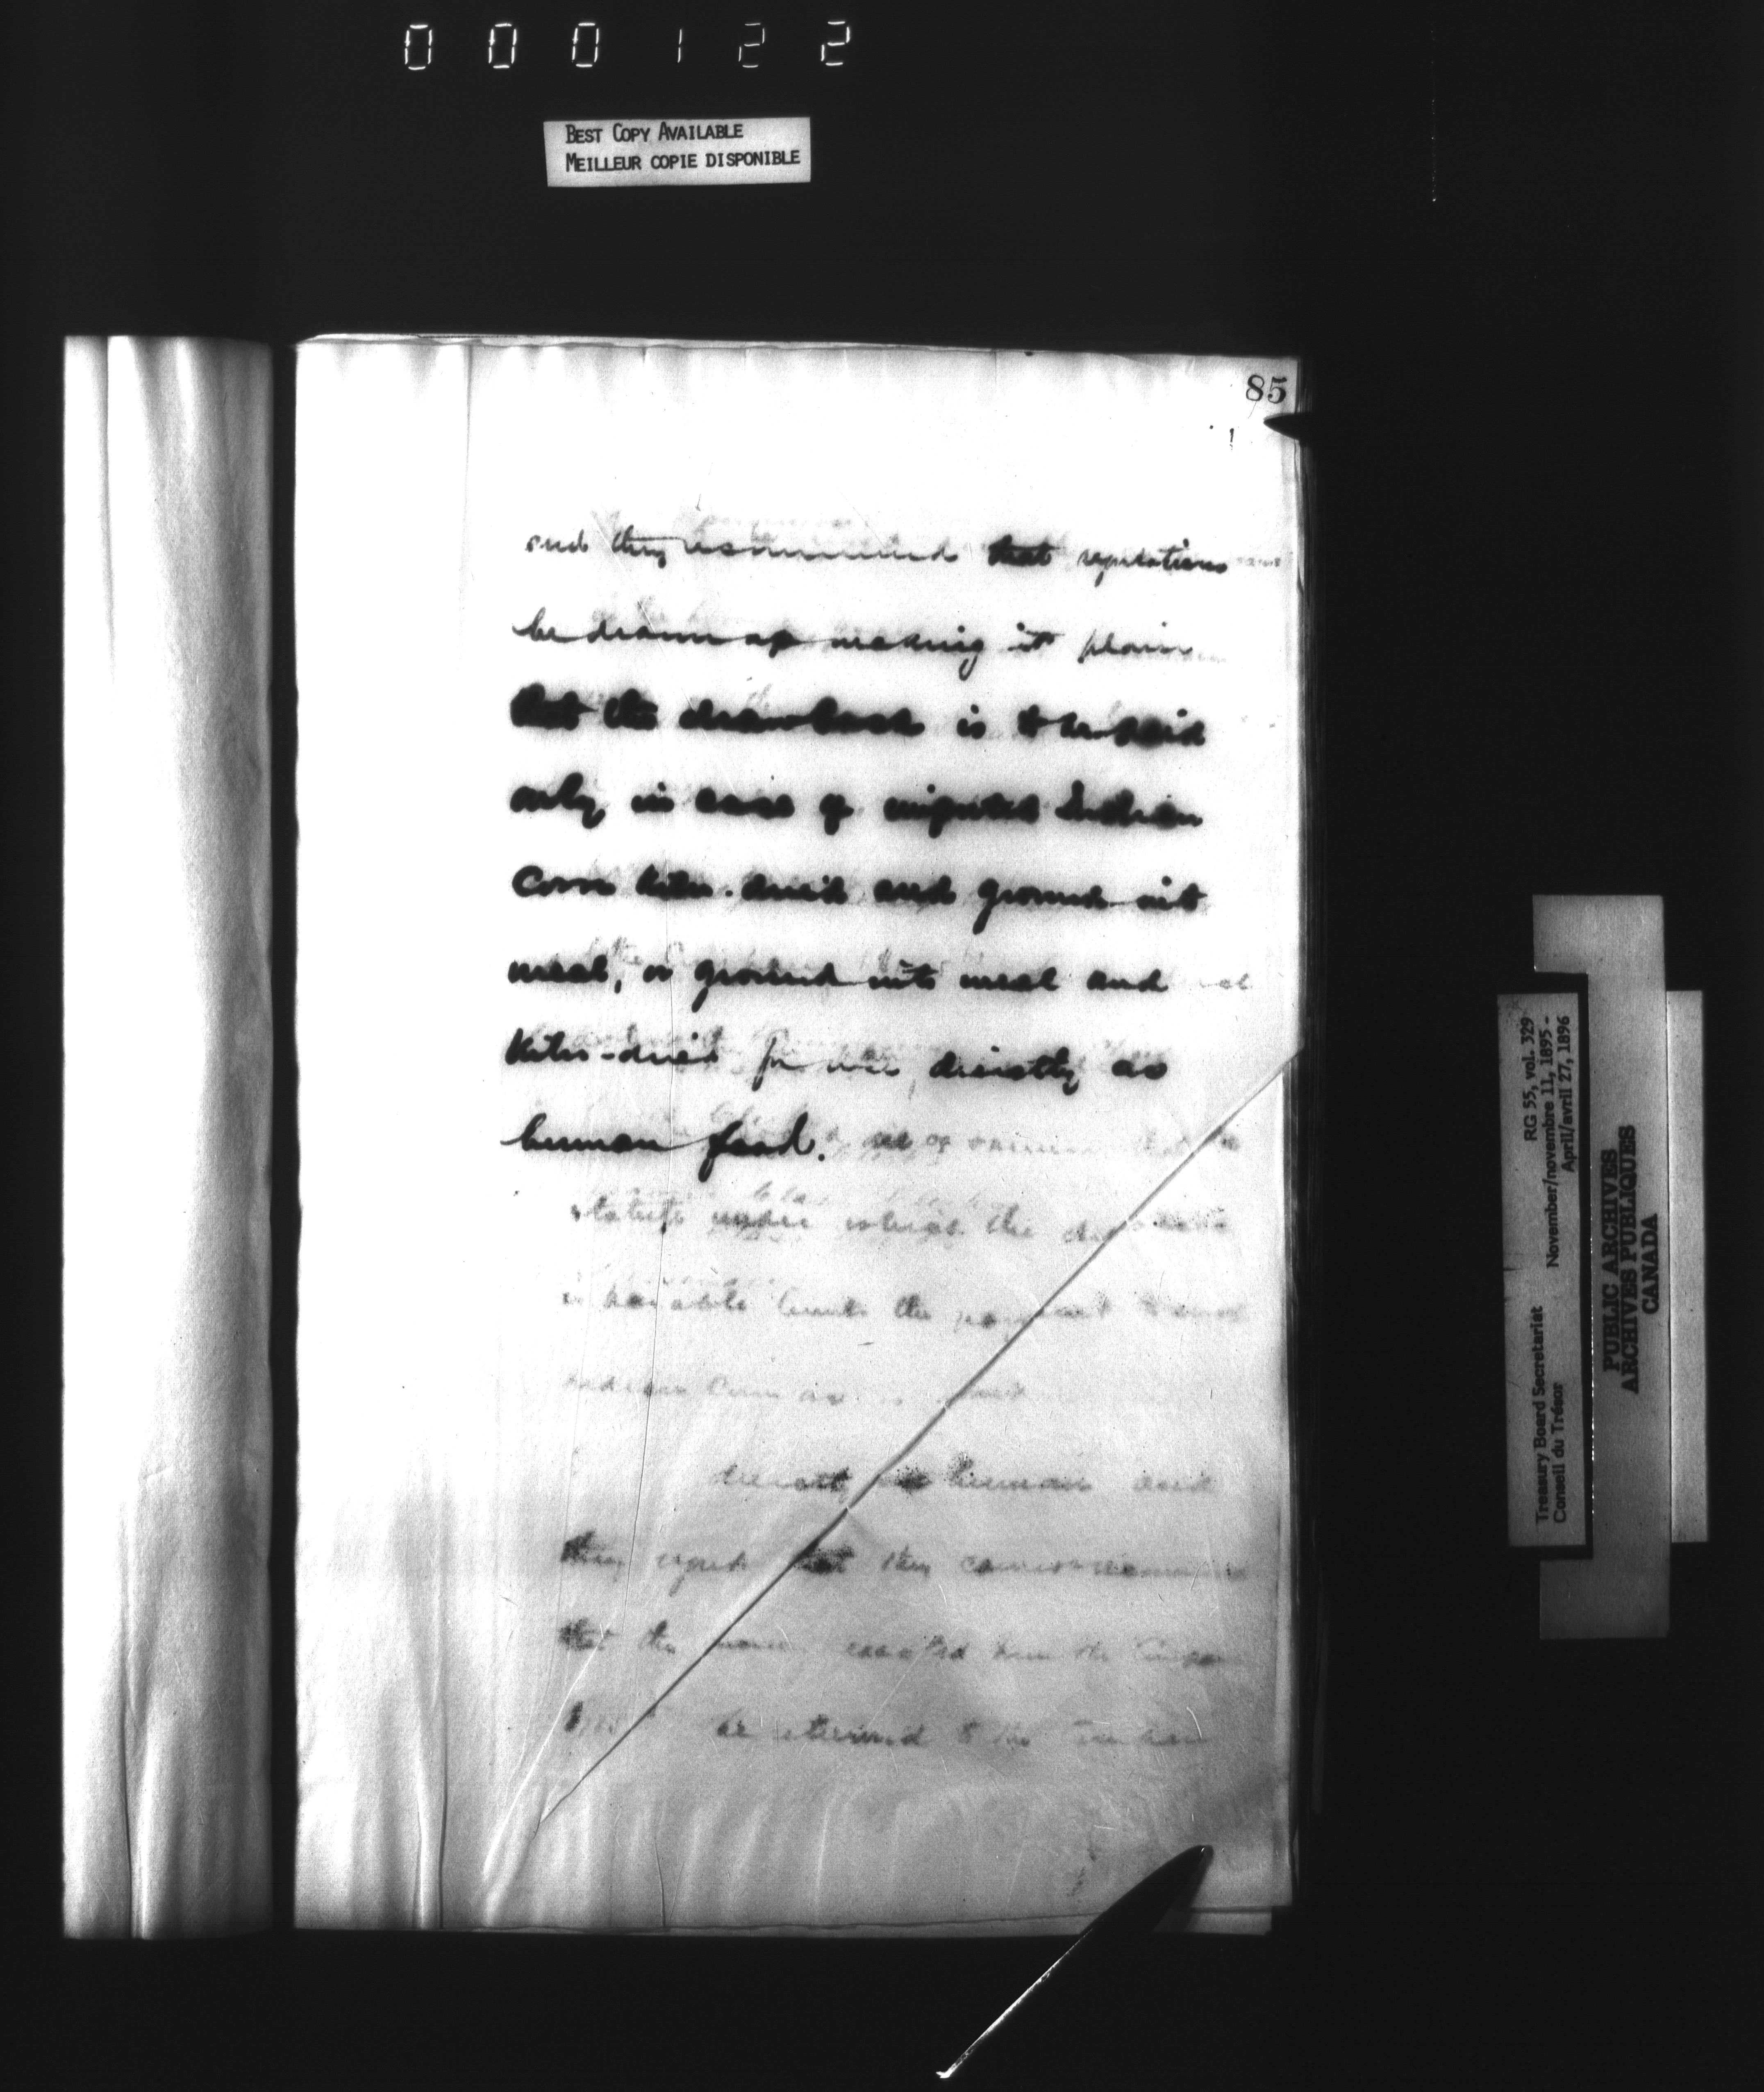 000122
BEST COPY AVAILABLE
MEILLEUR COPIE DISPONIBLE
85
and they recommend that regulations
be drawn up making it plain
that the drawback is to be paid
only in case of imported Indian
Corn kiln-dried and ground into
meal, or ground into meal and
kiln-dried for use directly as
human food.
statute under which the
is payable limits the payment
Indian Corn as
directly human and
they regret that they cannot recommend
that the from the
be returned to the
Treasury Board Secretariat RG 55, vol. 329
Conseil du Trésor November/novembre 11, 1895 -
April/avril 27, 1896
PUBLIC ARCHIVES
ARCHIVES PUBLIQUES
CANADA